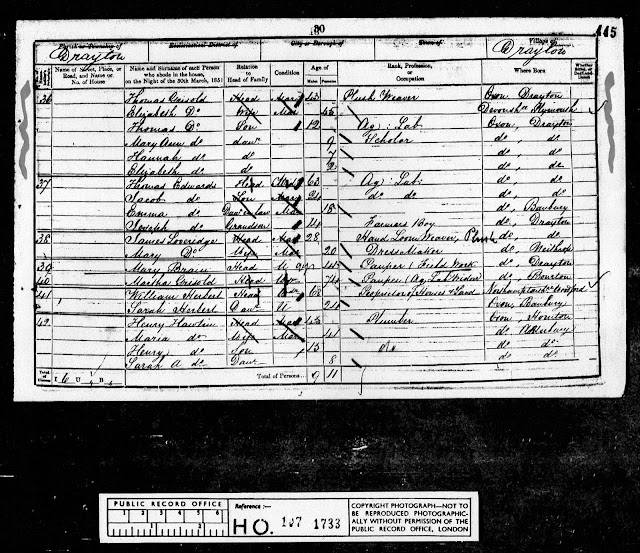 80
445
Parish or Township of
Ecclesiastical District of
City or Borough of
Town of
Village of
Drayton
Drayton
Name of Street, Place, or Road, and Name or No. of House
Name and Surname of each Person who abode in the house, on the Night of the 30th March, 1851
Relation to Head of Family
Condition
Age of
Males Females
Rank, Profession, or Occupation
Where Born
Whether Blind, or Deaf-and-Dumb
36 Thomas Grisold Head Mar 43 Plush Weaver Oxon Drayton
Elizabeth Do Wife Mar 45 Devonsh Plymouth
Thomas Do Son 12 Ag: Lab Oxon, Drayton
Mary Ann do daur 9 Scholar do, do
Hannah do do 7 do, do
Elizabeth do do do, do
37 Thomas Edwards Head 63 Ag: Lab: do do
Jacob do Son Mar 24 do do do, do
Emma do Daur in law Mar 18 do, Banbury
Joseph do Grandson 14 Farmers Boy do, Drayton
38 James Loveridge Head Mar 28 Hand Loom Weaver, Plush do do
Mary Do Wife Mar 20 Dress Maker do,
39 Mary Brain Head U 45 Pauper (Field Work do, Drayton
40 Martha Grisold Head 74 Pauper (Ag: Lab Widow do,
41 William Herbert Head 68 Proprietor of Houses & Land
Sarah Herbert Daur U 24 Oxon, Banbury
42 Henry Hawtin Head Mar 43 Plumber Oxon Hornton
Maria do Wife Mar 41 do
Henry do Son 13 do do do
Sarah A do Daur 8 do do
Total of Houses
Total of Persons... 9 11
PUBLIC RECORD OFFICE
1 2 3 4 5 6
1 2
Reference :-
HO. 107 1733
COPYRIGHT PHOTOGRAPH—NOT TO
BE REPRODUCED PHOTOGRAPHIC-
ALLY WITHOUT PERMISSION OF THE
PUBLIC RECORD OFFICE, LONDON